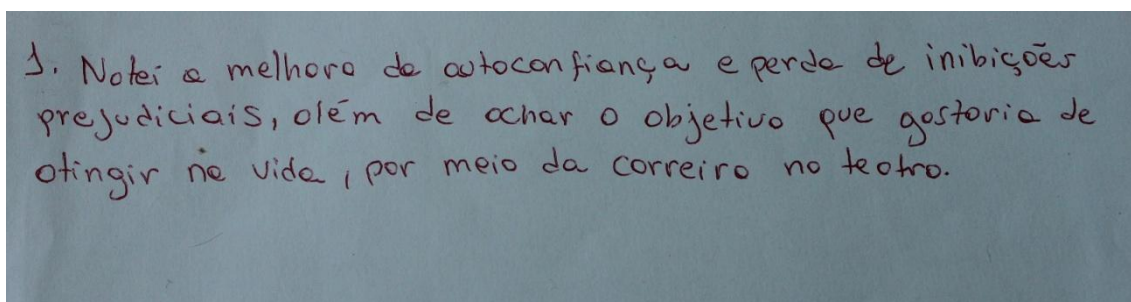 1. Notei a melhora da autoconfiança e perda de inibições
prejudiciais, além de achar o objetivo que gostaria de
atingir na vida, por meio da carreira no teatro.